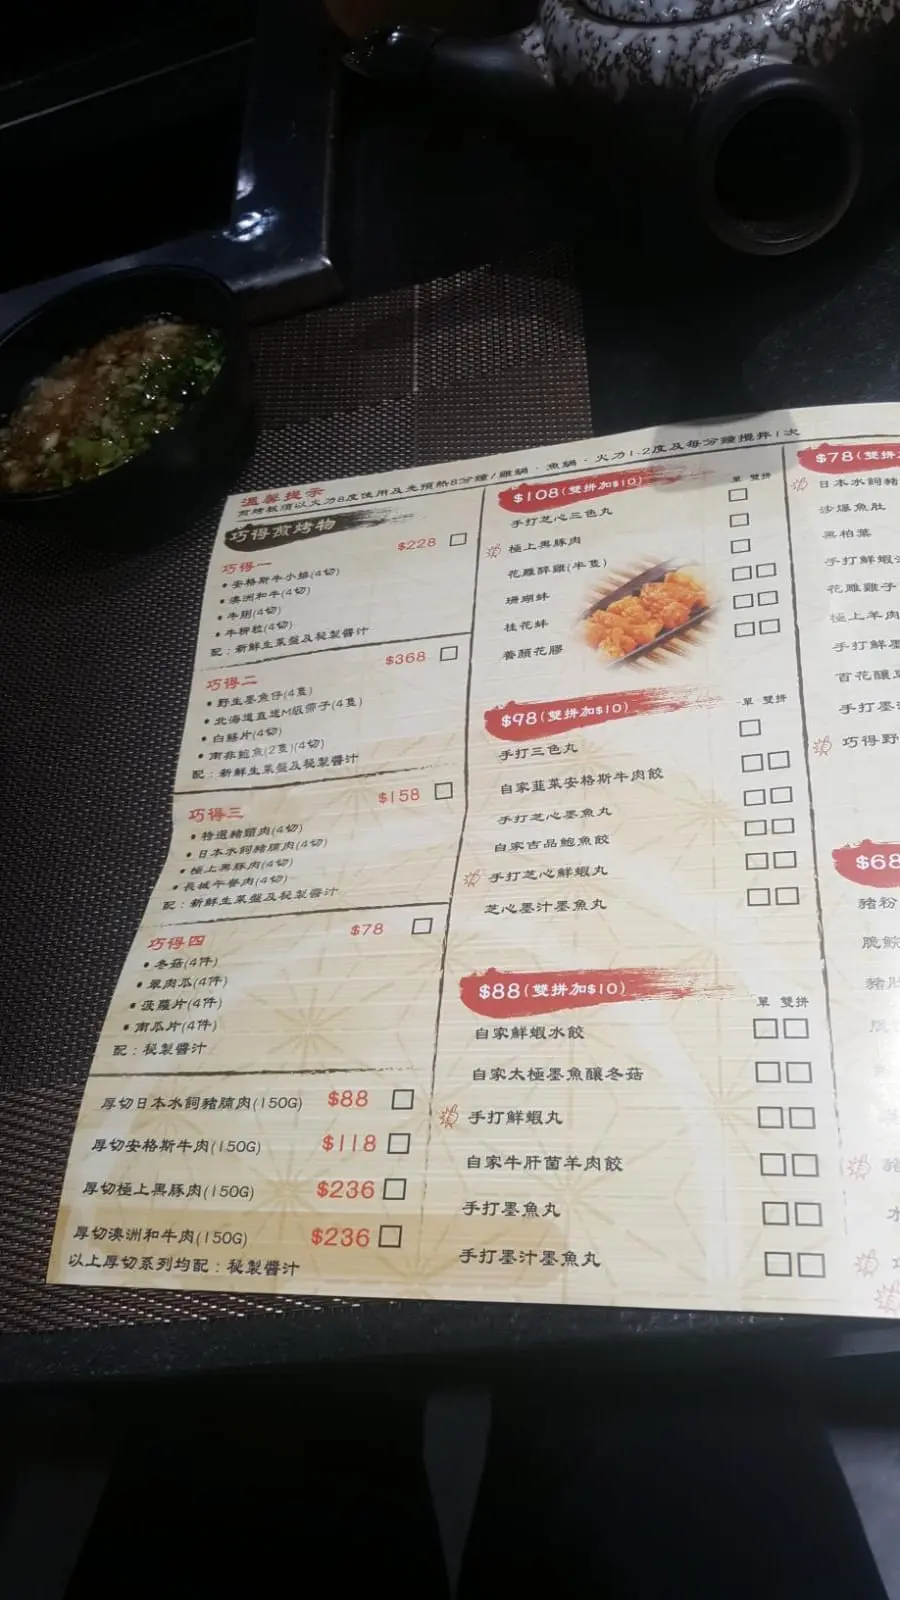 溫馨提示
煎烤板須以火力8度使用及先預熱8分鐘/雞鍋·魚鍋·火力1-2度及每分鐘攪拌1次
巧得煎烤物
巧得一 $228
•安格斯牛小排(4切)
•澳洲和牛(4切)
•牛脷(4切)
•牛柳粒(4切)
配：新鮮生菜盤及秘製醬汁
巧得二 $368
•野生墨魚仔(4隻)
•北海道直送M級帶子(4隻)
•白鱔片(4切)
•南非鮑魚(2隻)(4切)
配：新鮮生菜盤及秘製醬汁
巧得三 $158
•特選豬頸肉(4切)
•日本水飼豬腩肉(4切)
•極上黑豚肉(4切)
•長城午餐肉(4切)
配：新鮮生菜盤及秘製醬汁
巧得四 $78
•冬菇(4件)
•翠肉瓜(4件)
•菠蘿片(4件)
•南瓜片(4件)
配：秘製醬汁
厚切日本水飼豬腩肉(150G) $88
厚切安格斯牛肉(150G) $118
厚切極上黑豚肉(150G) $236
厚切澳洲和牛肉(150G) $236
以上厚切系列均配：秘製醬汁
$108(雙拼加$10) 單 雙拼
手打芝心三色丸
極上黑豚肉
花雕醉雞(半隻)
珊瑚蚌
桂花蚌
養顏花膠
$98(雙拼加$10) 單 雙拼
手打三色丸
自家韮菜安格斯牛肉餃
手打芝心墨魚丸
自家吉品鮑魚餃
手打芝心鮮蝦丸
芝心墨汁墨魚丸
$88(雙拼加$10) 單 雙拼
自家鮮蝦水餃
自家太極墨魚釀冬菇
手打鮮蝦丸
自家牛肝菌羊肉餃
手打墨魚丸
手打墨汁墨魚丸
$78(雙拼
日本水飼豬
沙爆魚肚
黑柏葉
手打鮮蝦
花雕雞子
極上羊肉
手打鮮墨
百花釀
手打墨
巧得野
$68
豬粉
脆鯇
豬
豬
水